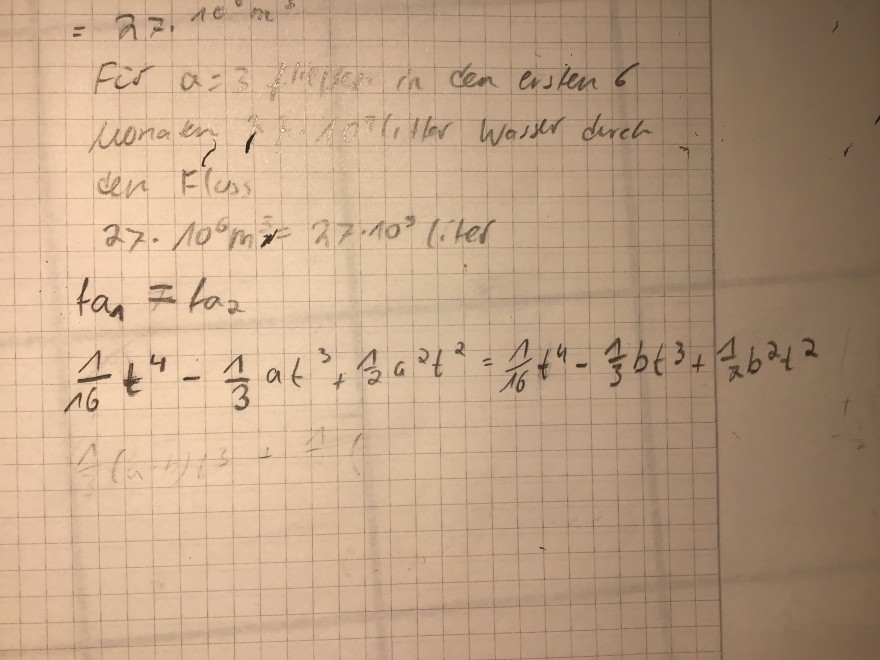 = 27 · 10⁶ m³
Für a = 3 fließen in den ersten 6
Monaten 27 · 10⁹ liter Wasser durch
den Fluss
27 · 10⁶ m³ = 27 · 10⁹ liter
fa₁ = fa₂
1/16 t⁴ - 1/3 at³ + 1/2 a²t² = 1/16 t⁴ - 1/3 bt³ + 1/2 b²t²
1/3 (a-b) t³